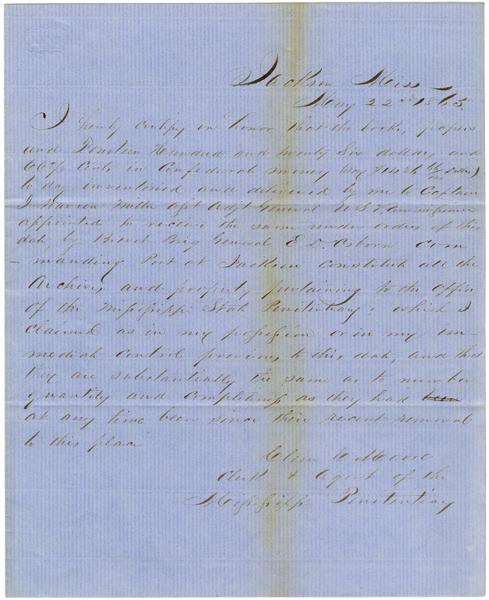 Jackson Miss
May 22nd 1865.
I hereby certify on honor that the books, papers
and Fourteen Hundred and twenty Six dollars, and
66⅔ Cents in Confederate money
to day inventoried and delivered by me to Captain
J Warren Miller Asst Adjt General U S V
appointed to receive the same under orders of this
date by Brevet Brig General E D Osborn Com
- manding Post at Jackson constitute all the
Archives and property pertaining to the Office
of the Mississippi State Penitentiary; which I
claimed as in my possession or in my im
mediate control previous to this date, and that
they are substantially the same as to number
quantity and completeness as they had been
at any time been since their recent removal
to this place
Moore
Clerk & Agent of the
Mississippi Penitentiary